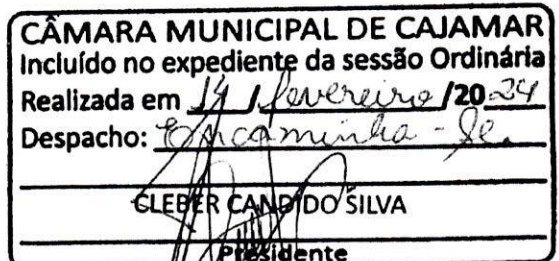 CÂMARA MUNICIPAL DE CAJAMAR
Incluído no expediente da sessão Ordinária
Realizada em 14 / fevereiro /20 24
Despacho: Encaminha-se.
CLEBER CANDIDO SILVA
Presidente